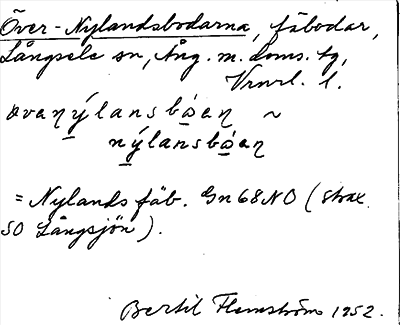 Över-Nylandsbodarna, fäbodar,
Långsele sn, Ång. m. doms. tg,
Vrnrl. l.
ovaṇýlansbo̱aṇ ~
nýlansbo̱aṇ
= Nylands fäb. Gn 68 NO (strax
SO Långsjön).
Bertil Flemström 1952.